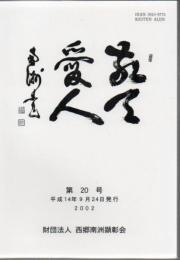 KEITEN AIJIN
敬天
愛人
南洲書
第 20 号
平成14年9月24日発行
2002
財団法人 西郷南洲顕彰会